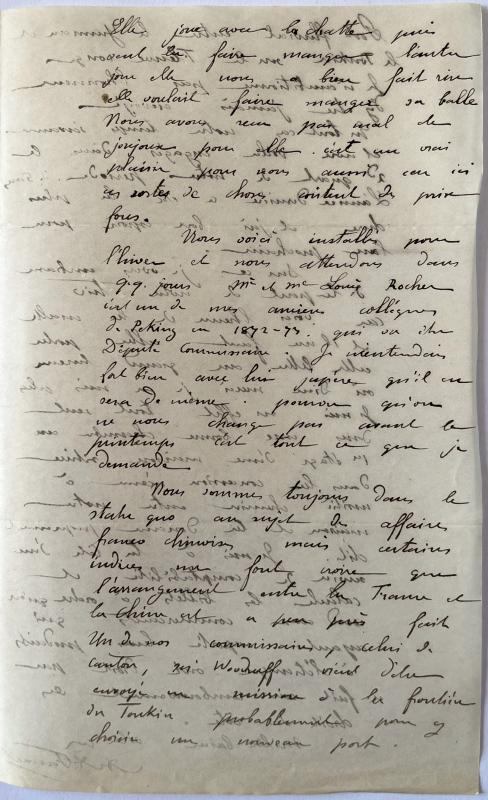 Elle joue avec la chatte puis
veut la faire manger. L'autre
jour elle nous a bien fait rire
elle voulait faire manger sa balle
Nous avons reçu pas mal de
joujoux pour elle. c'est un vrai
plaisir pour nous aussi car ici
ces sortes de choses coûtent des prix
fous.
Nous voici installés pour
l'hiver et nous attendons dans
q.q. jours Mr et Me Louis Rocher
c'est un de mes anciens collègues
de Péking en 1872-73. qui va être
Député commissaire. Je m'entendais
fort bien avec lui j'espère qu'il en
sera de même. pourvu qu'on
ne nous change pas avant le
printemps c'est tout ce que je
demande.
Nous sommes toujours dans le
statu quo au sujet de affaires
franco chinoises mais certains
indices me font croire que
l'arrangement entre la France et
la Chine est a peu près fait
Un de nos commissaires celui de
canton, Woodruff vient d'être
envoyé en mission a la frontière
du Tonkin probablement pour y
choisir un nouveau port.